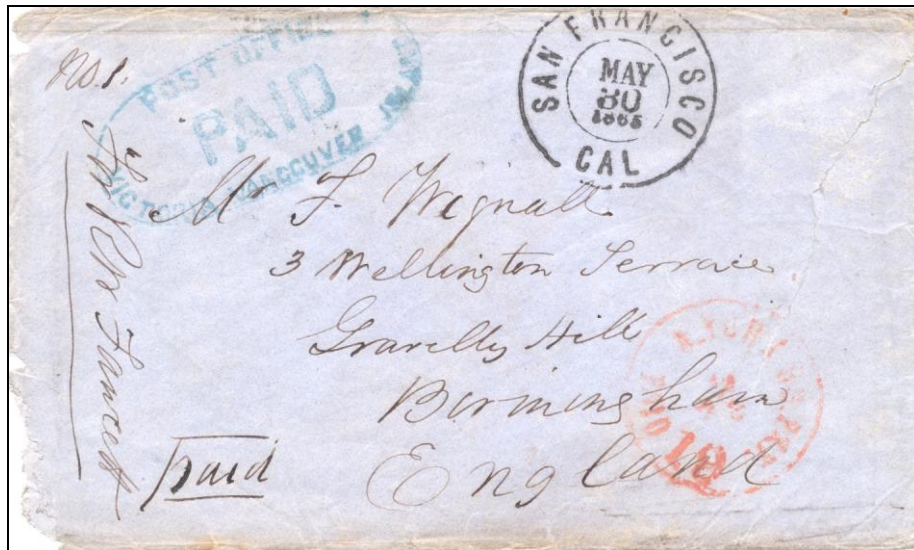 No. 1.
POST OFFICE
PAID
VICTORIA VANCOUVER
SAN FRANCISCO
MAY
30
1865
CAL
Mr F. Wignall
3 Wellington Terrace
Gravelly Hill
Birmingham
England
paid
Fawcett
PAID